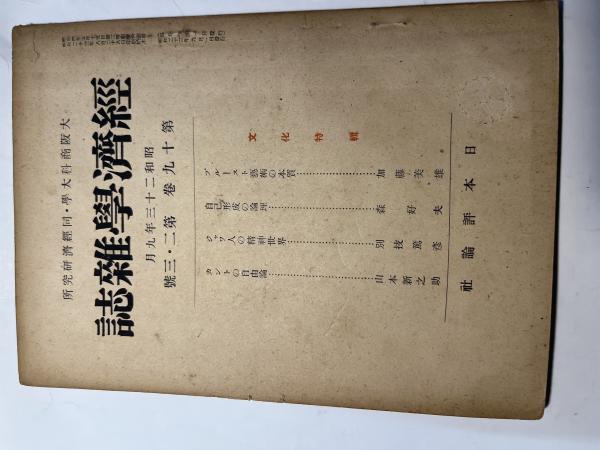 大阪商科大學・同經濟研究所
經濟學雜誌
昭和二十三年九月
第十九卷 第二・三號
文化特輯
プルースト藝術の本質……加藤美雄
自己形成の論理……森好夫
ジャワ人の精神世界……別技篤彦
カントの自由論……山本新之助
日本評論社